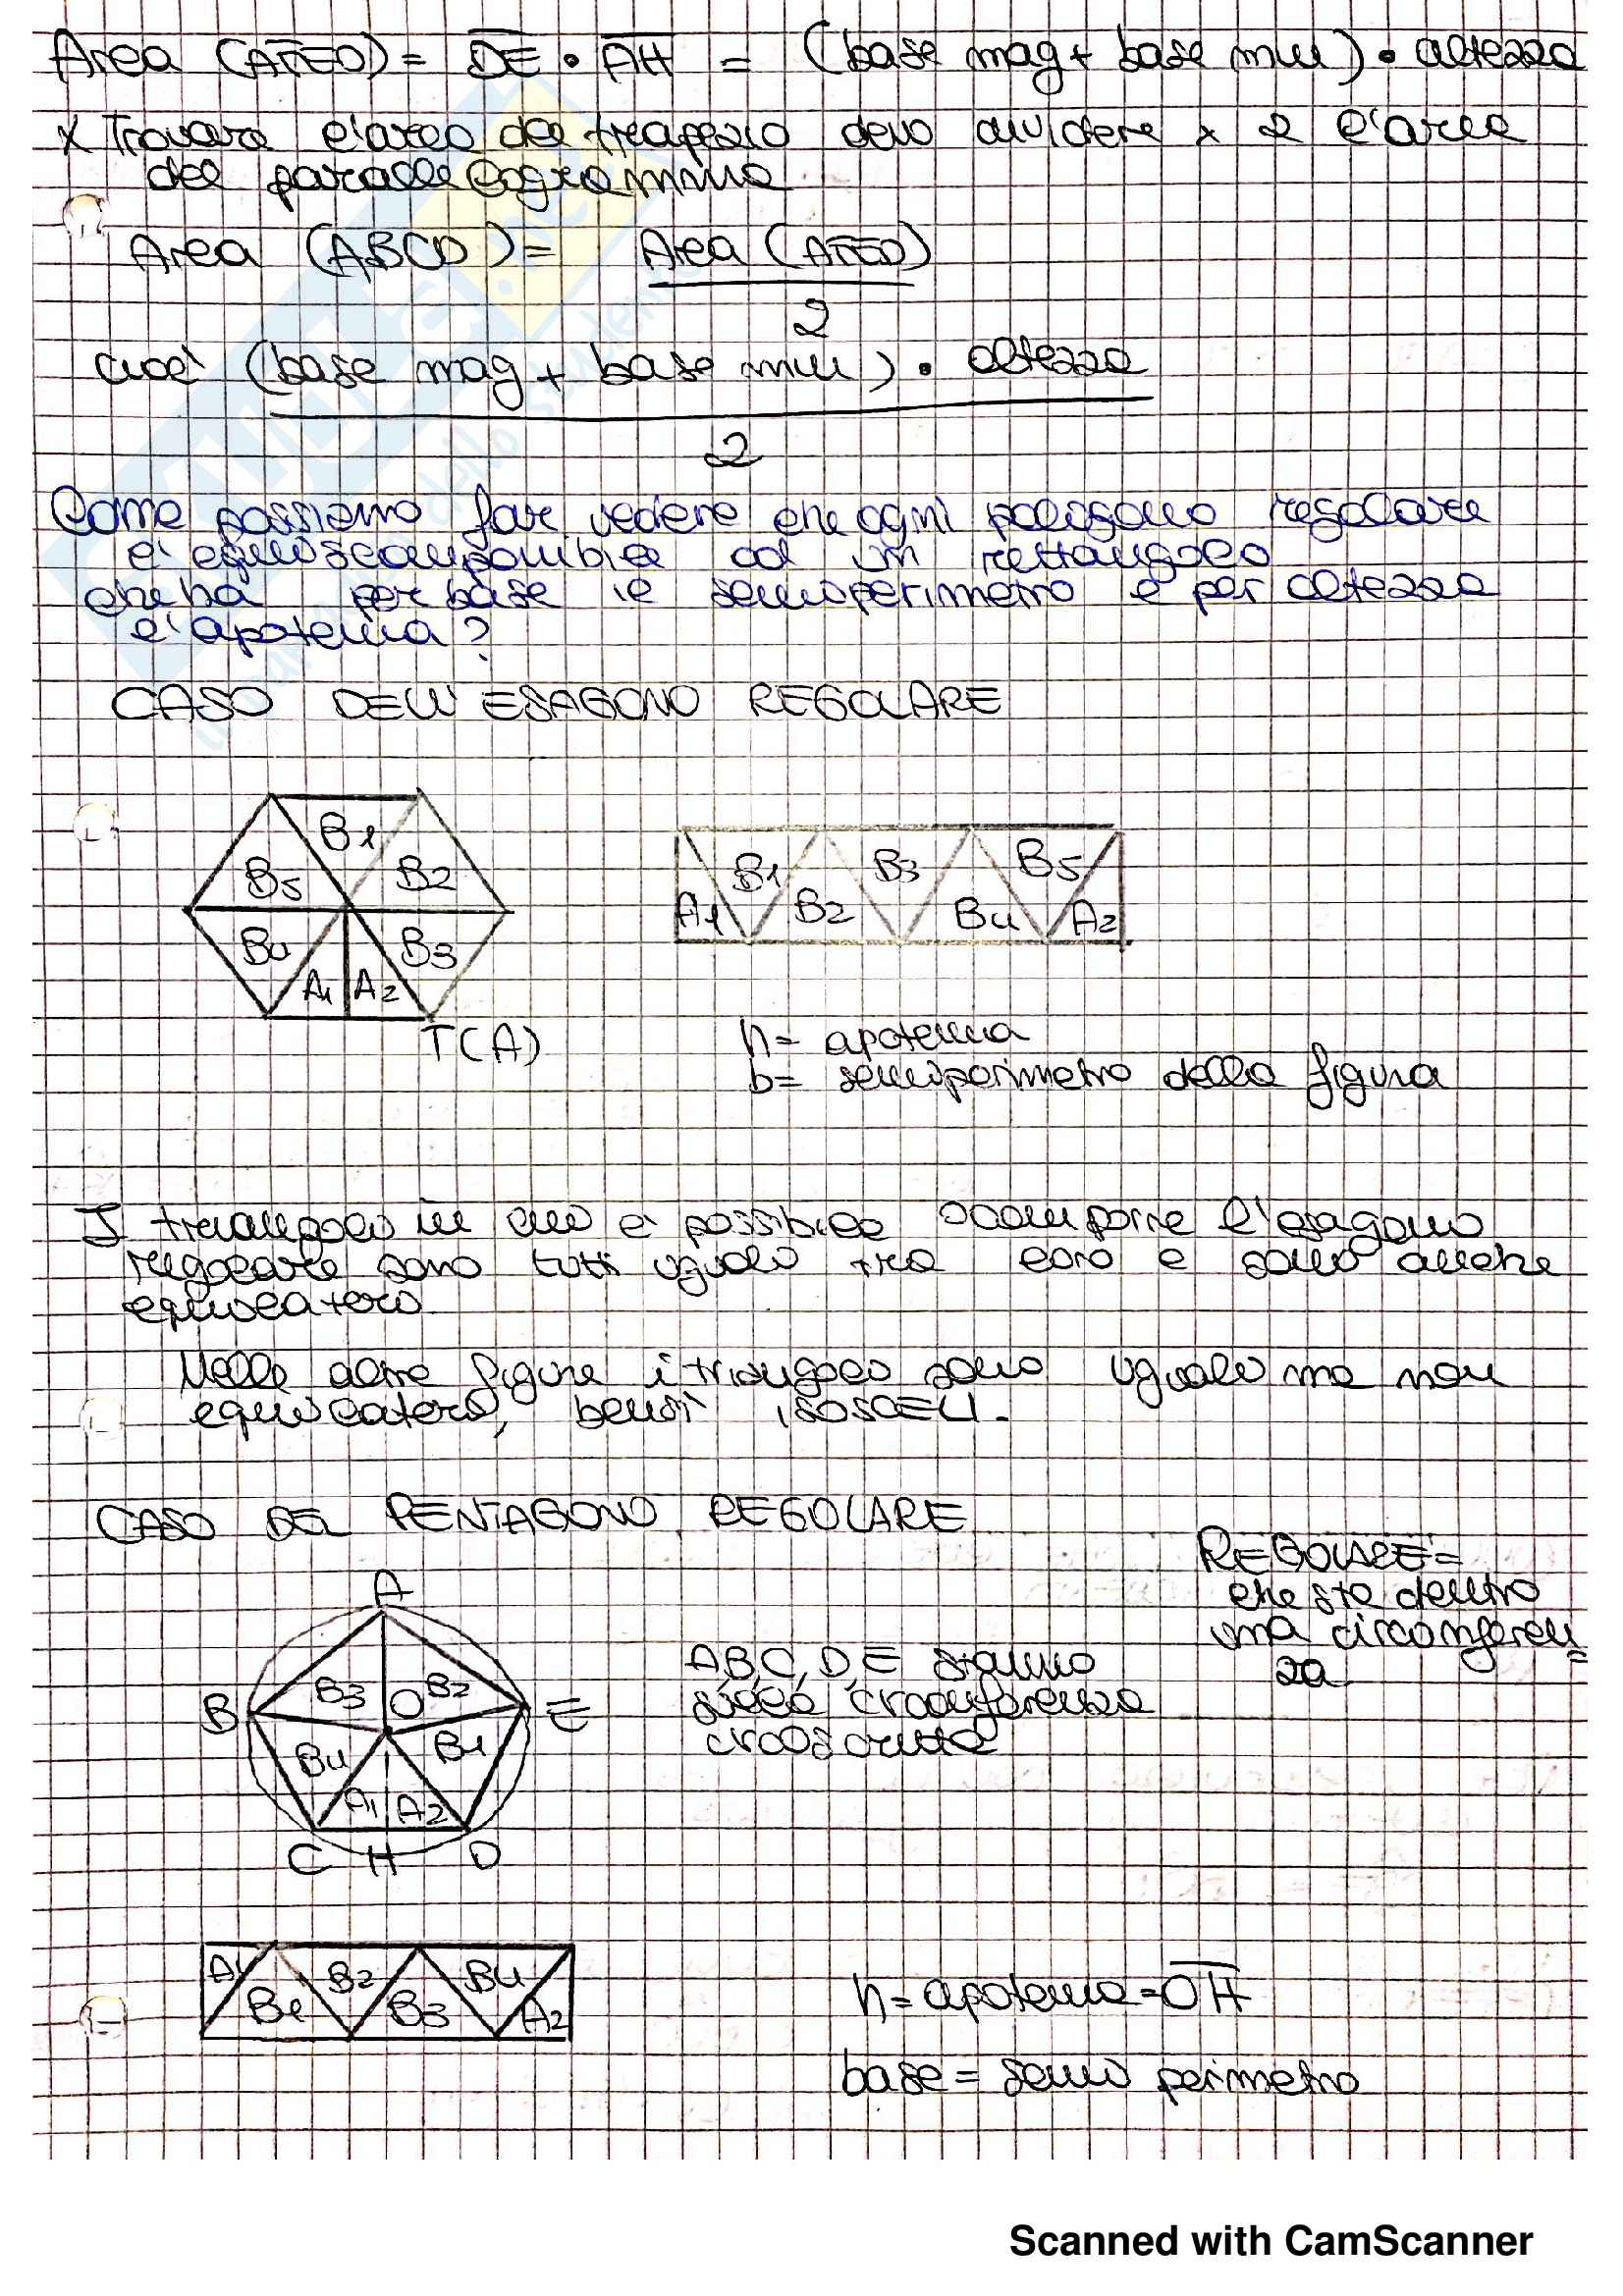 Area (AFED) = DE • AH = (base mag + base min) • altezza
x Trovare l'area del trapezio devo dividere x 2 l'area
del parallelogramma
Area (ABCD) = Area (AFED)
2
cioè (base mag + base min) • altezza
2
Come possiamo far vedere che ogni poligono regolare
è equiscomponibile ad un rettangolo
che ha per base il semiperimetro e per altezza
l'apotema?
CASO DELL'ESAGONO REGOLARE
B1
B5 B2
B4 B3
A1 A2
T(A)
B1 B3 B5
A1 B2 B4 A2
h = apotema
b = semiperimetro della figura
I triangoli in cui è possibile scomporre l'esagono
regolare sono tutti uguali tra loro e sono anche
equilateri.
Nelle altre figure i triangoli sono uguali ma non
equilateri, bensì ISOSCELI.
CASO DEL PENTAGONO REGOLARE
REGOLARE =
che sta dentro
una circonferen=
za
A
B3 O B2
B E
B4 B1
A1 A2
C H D
A,B,C,D,E stanno
sulla circonferenza
circoscritta
A1 B2 B4
B1 B3 A2
h = apotema = OH
base = semi perimetro
Scanned with CamScanner